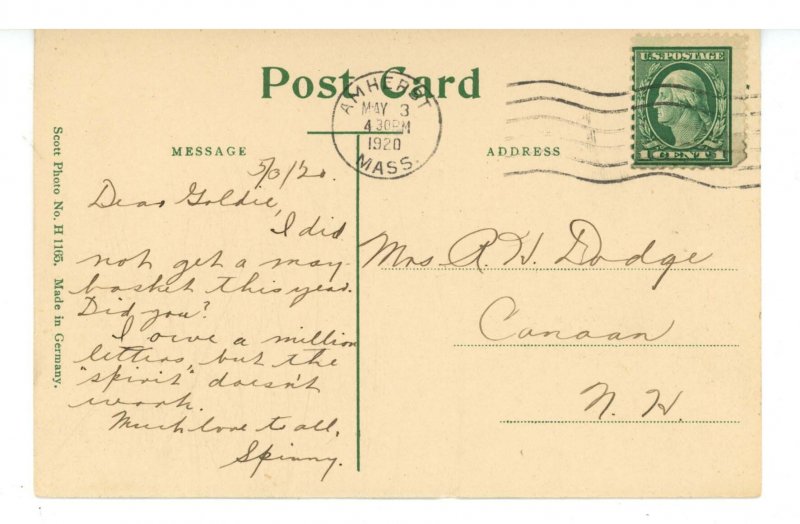 Post Card
AMHERST
MAY 3
4 30PM
1920
MASS.
U.S. POSTAGE
1 CENT 1
MESSAGE
ADDRESS
Scott Photo No. H 1165. Made in Germany.
5/3/20.
Dear Goldie,
I did
not get a may
basket this year.
Did you?
I owe a million
letters, but the
"spirit" doesn't
work.
Much love to all,
Spinny.
Mrs R. H. Dodge
Canaan
N. H.